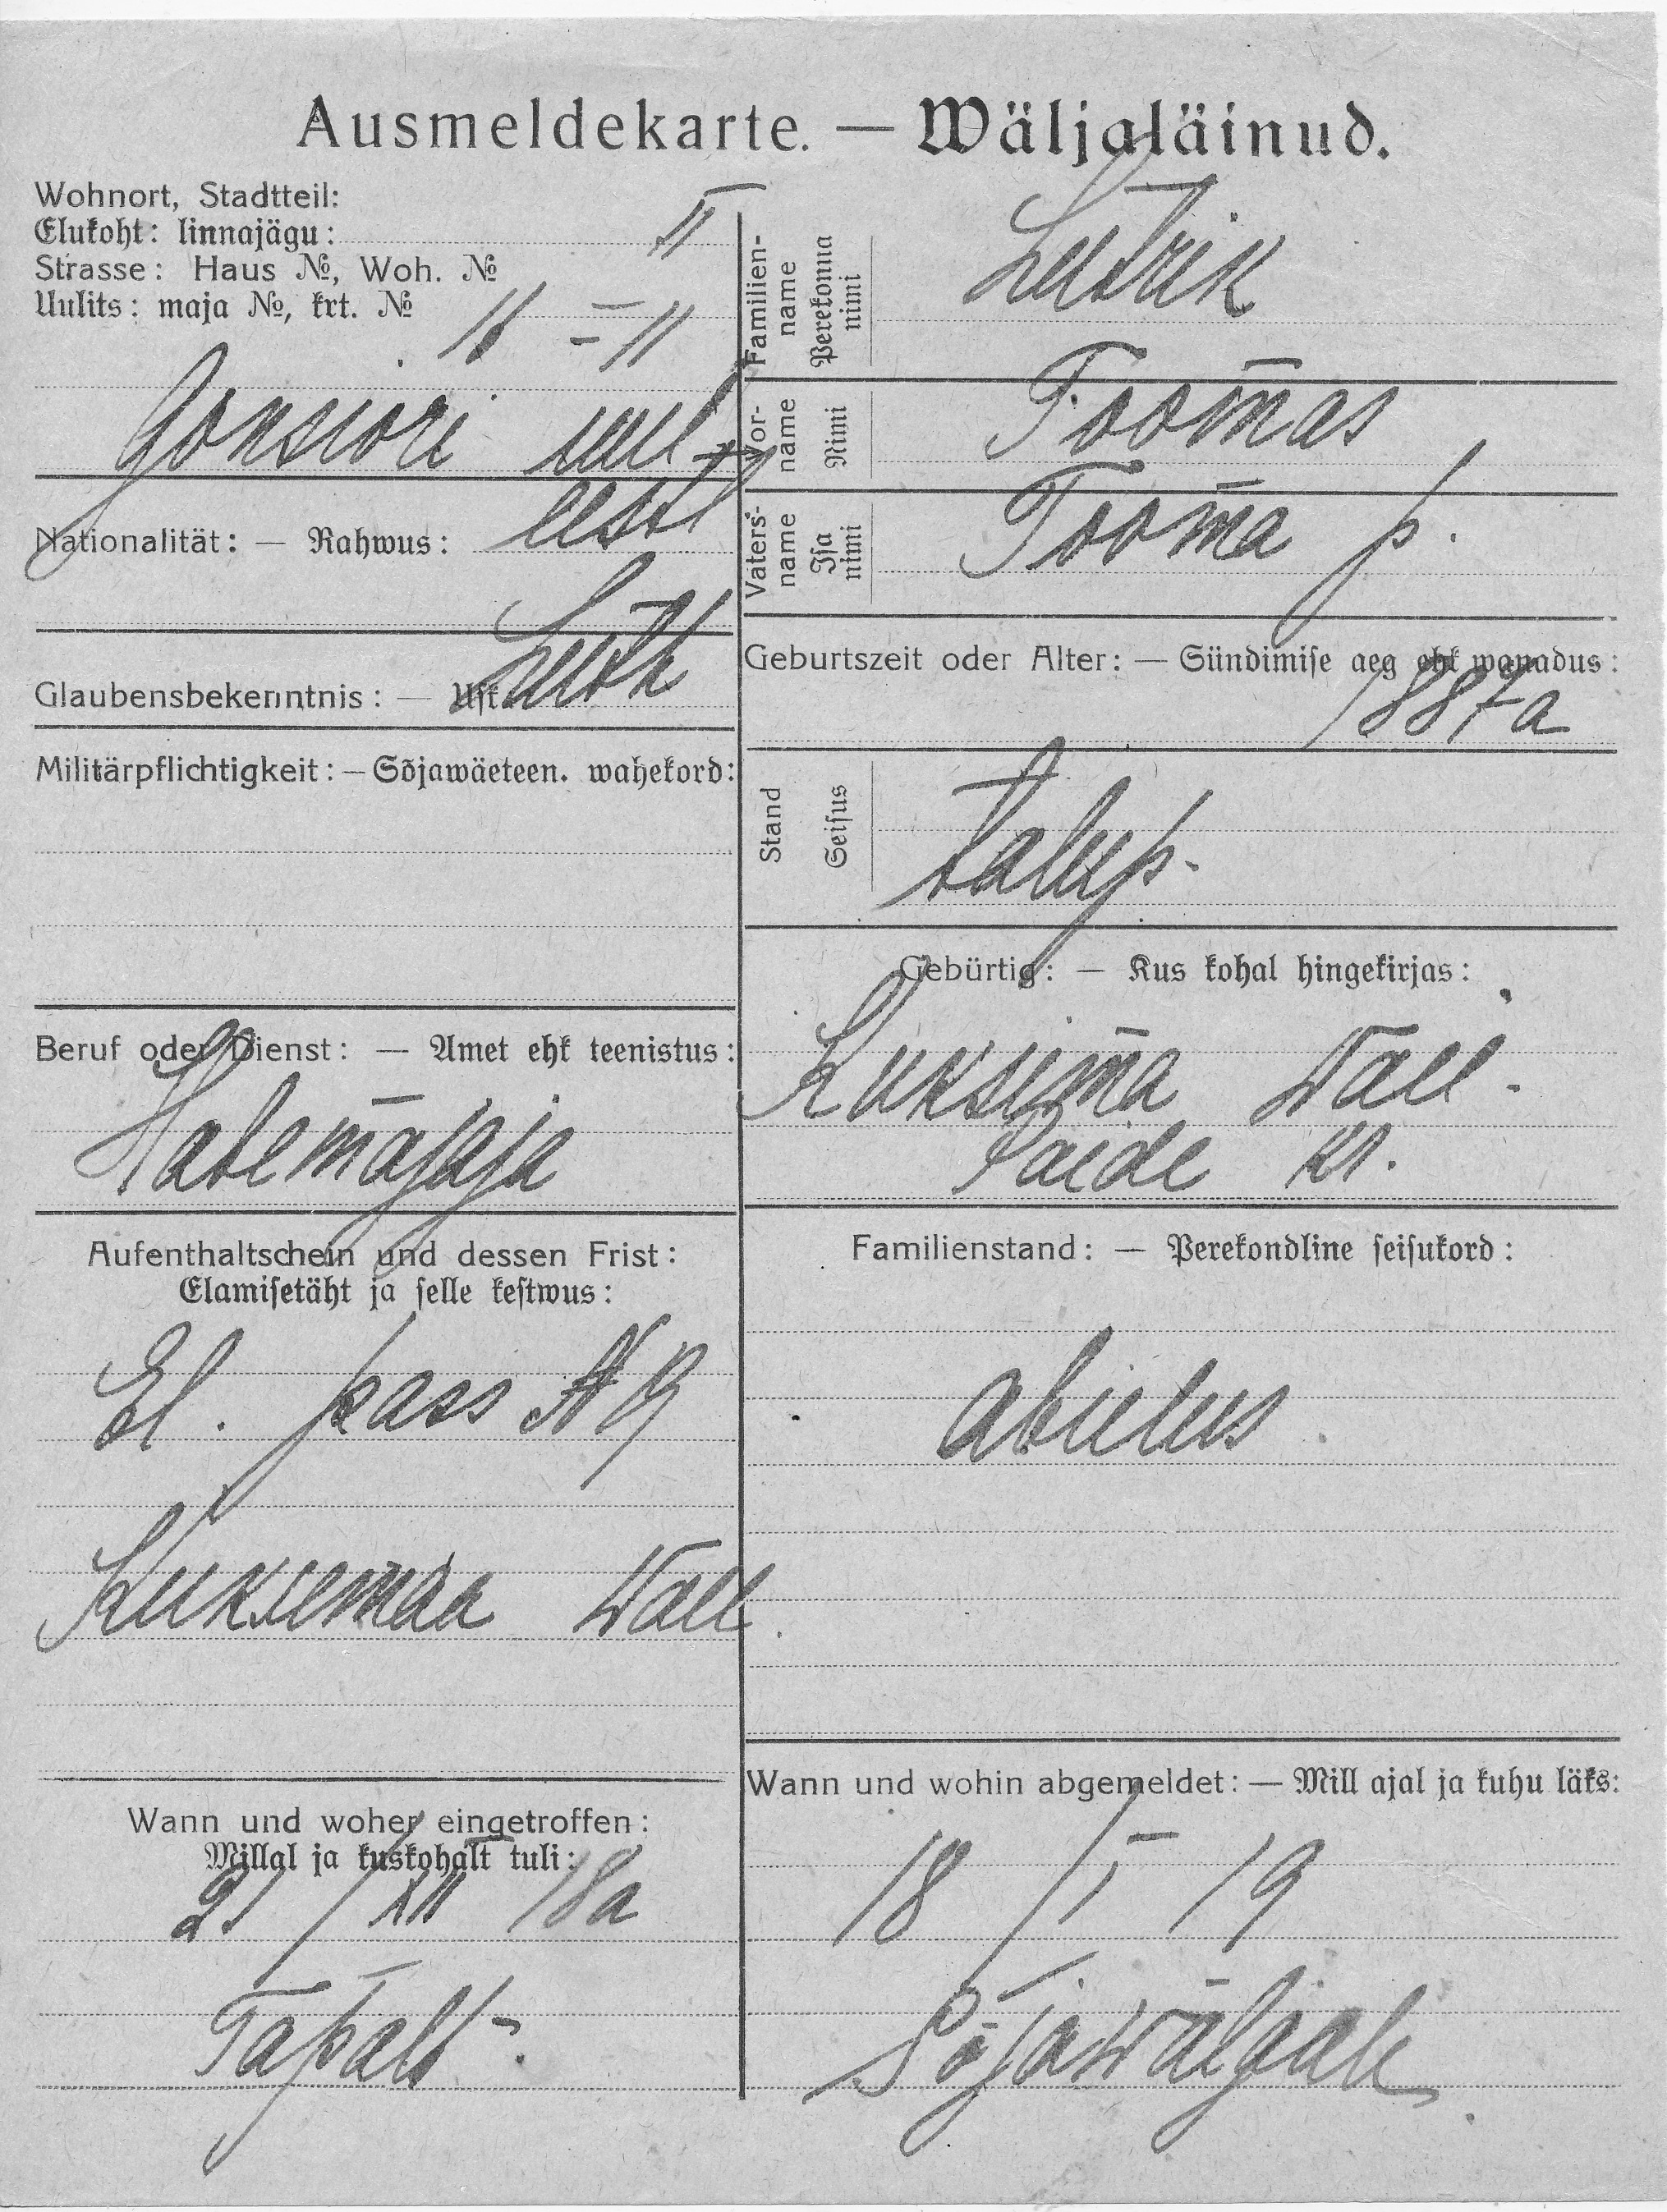 Ausmeldekarte. — Wäljaläinud.
Wohnort, Stadtteil:
Elukoht: linnajägu: II
Strasse: Haus №, Woh. №
Uulits: maja №, krt. №
— 11
Gonsiori uul
Nationalität: — Rahwus: eestl
Glaubensbekenntnis: — Usk Luth
Militärpflichtigkeit: — Sõjawäeteen. wahekord:
Beruf oder Dienst: — Amet ehk teenistus:
Habemäjaja
Aufenthaltschein und dessen Frist:
Elamisetäht ja selle kestwus:
El. pass № 9
Kuksemaa Wall.
Wann und woher eingetroffen:
Millal ja kuskohalt tuli:
21 / XII 18a
Tapalt
Familien-
name
Perekonna
nimi
Lutrik
Vor-
name
Nimi
Toomas
Vaters-
name
Isa
nimi
Tooma p.
Geburtszeit oder Alter: — Sündimise aeg ehk wanadus:
1887a
Stand
Seisus
talup.
Gebürtig: — Kus kohal hingekirjas:
Kuksema Wall.
Paide kr.
Familienstand: — Perekondline seisukord:
abielus.
Wann und wohin abgemeldet: — Mill ajal ja kuhu läks:
18 / I 19
Sõjawäljale.